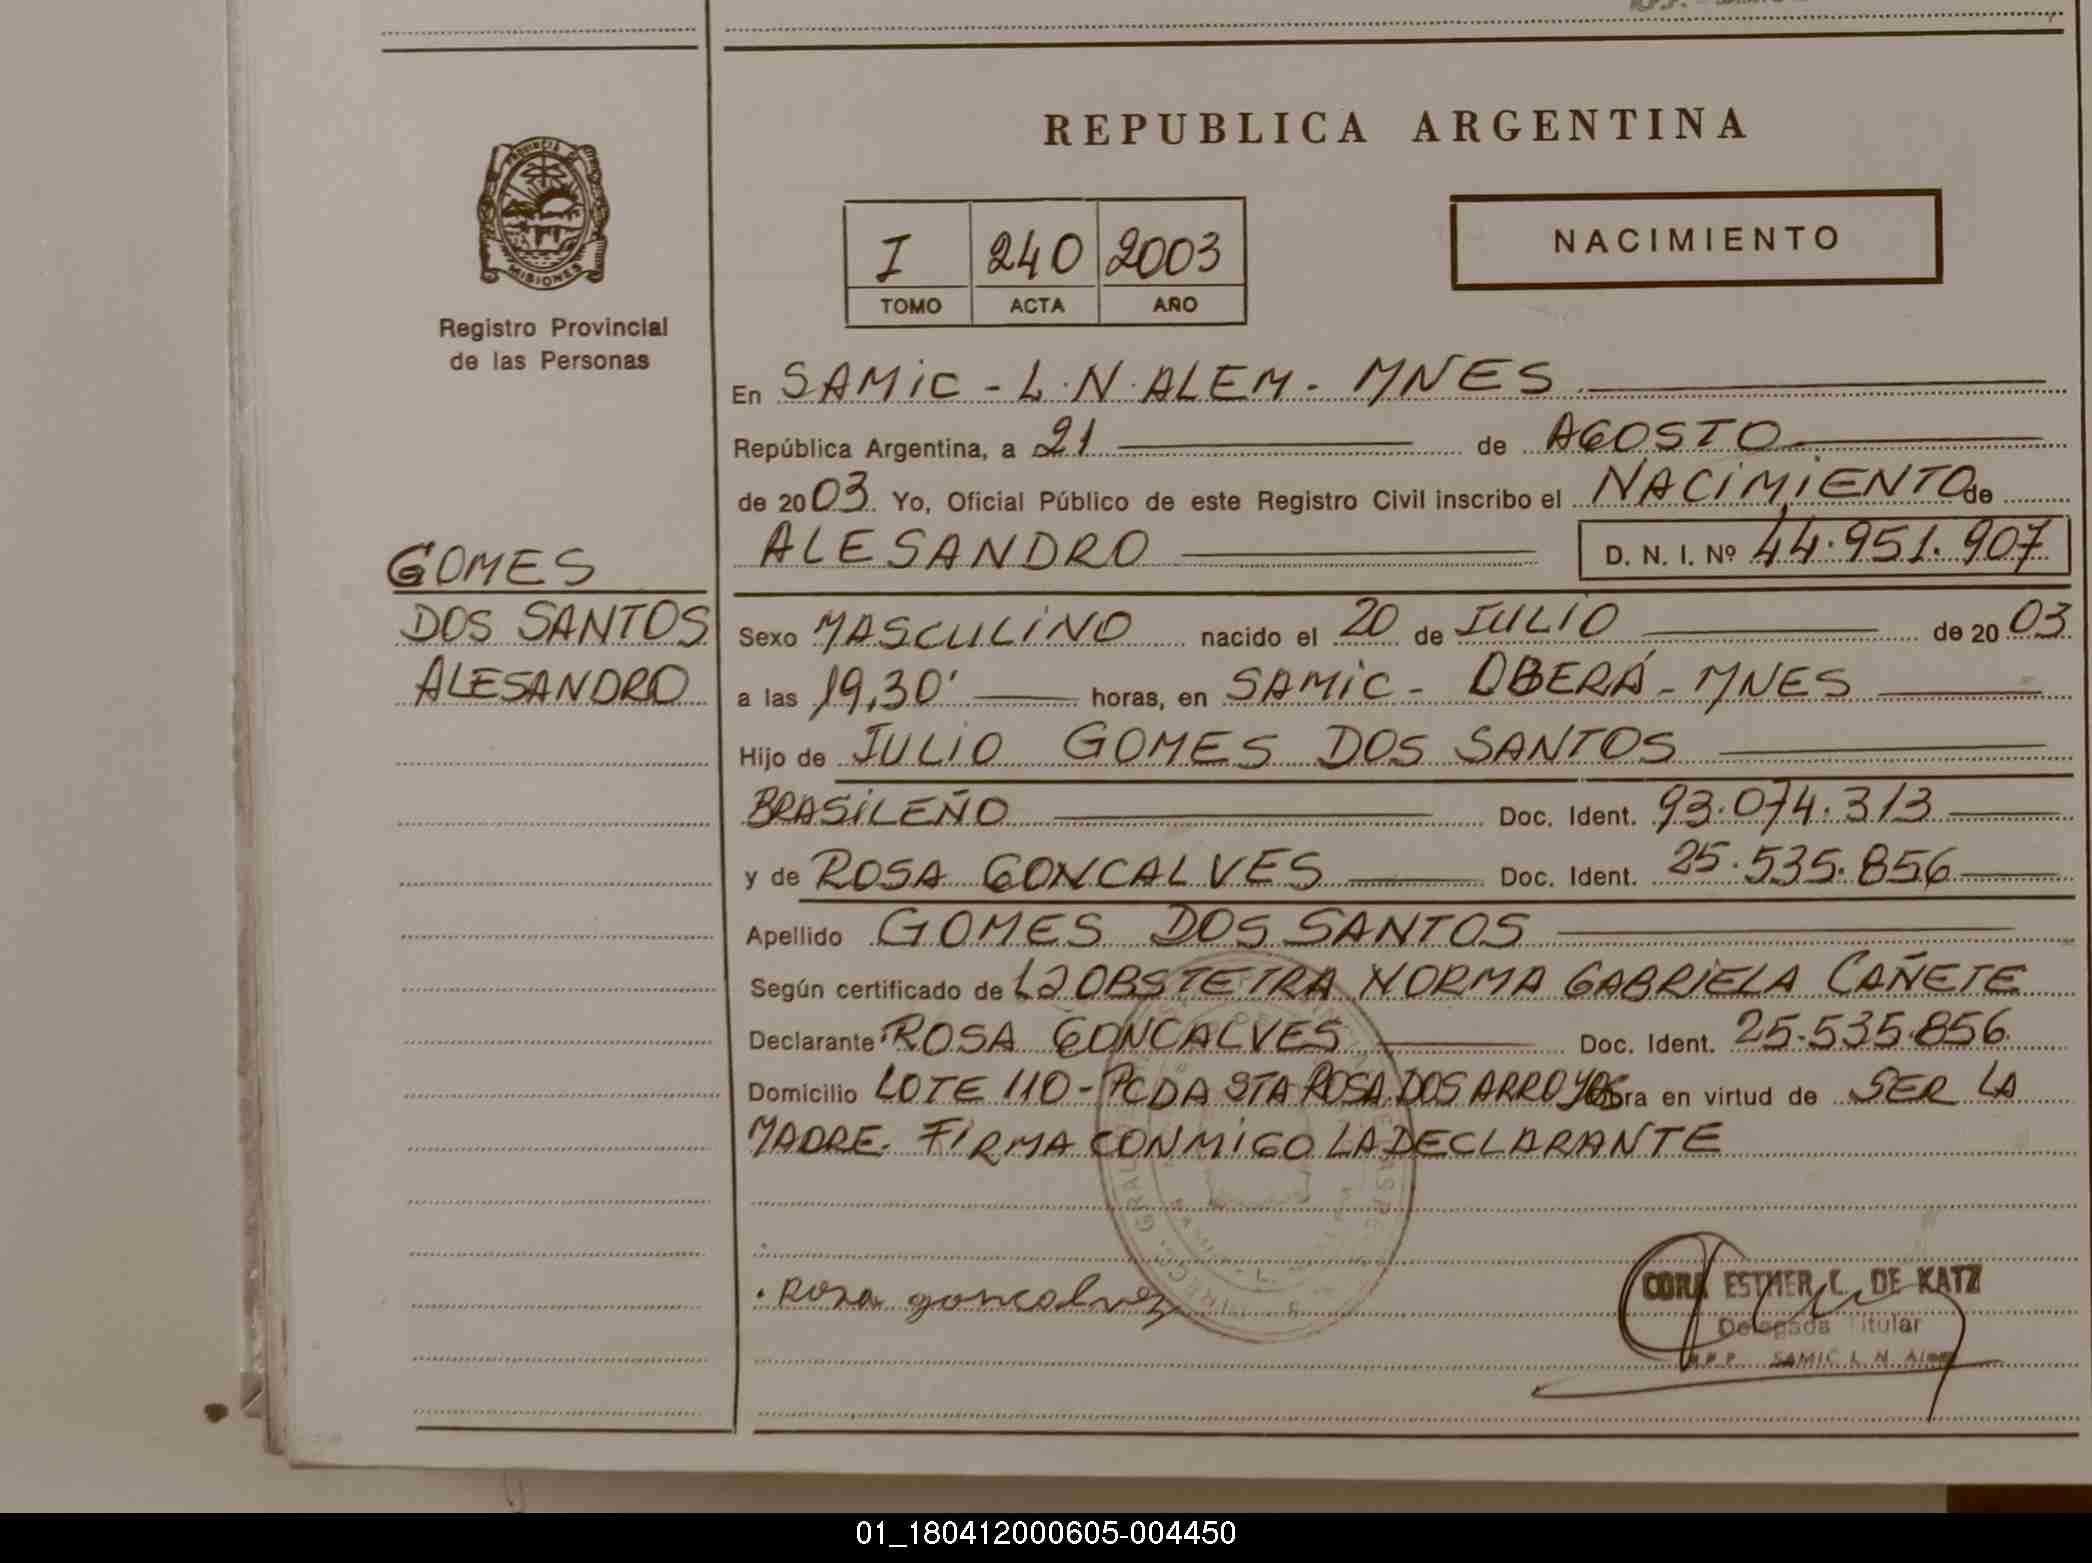 REPUBLICA ARGENTINA
PROVINCIA DE
MISIONES
Registro Provincial
de las Personas
I 240 2003
TOMO ACTA AÑO
NACIMIENTO
En SAMIC - L.N.ALEM - MNES
República Argentina, a 21 de AGOSTO
de 2003 Yo, Oficial Público de este Registro Civil inscribo el NACIMIENTO de
ALESANDRO D. N. I. Nº 44.951.907
GOMES
DOS SANTOS
ALESANDRO
Sexo MASCULINO nacido el 20 de JULIO de 2003
a las 19,30' horas, en SAMIC - OBERÁ - MNES
Hijo de JULIO GOMES DOS SANTOS
BRASILEÑO Doc. Ident. 93.074.313
y de ROSA GONCALVES Doc. Ident. 25.535.856
Apellido GOMES DOS SANTOS
Según certificado de La OBSTETRA NORMA GABRIELA CAÑETE
Declarante ROSA GONCALVES Doc. Ident. 25.535.856
Domicilio LOTE 110 - PCDA STA ROSA DOS ARROYOS Obra en virtud de SER LA
MADRE. FIRMA CONMIGO LA DECLARANTE
Rosa goncalvez
CORA ESTHER L. DE KATZ
Delegada Titular
R.P.P. SAMIC L. N. Alem
01_180412000605-004450